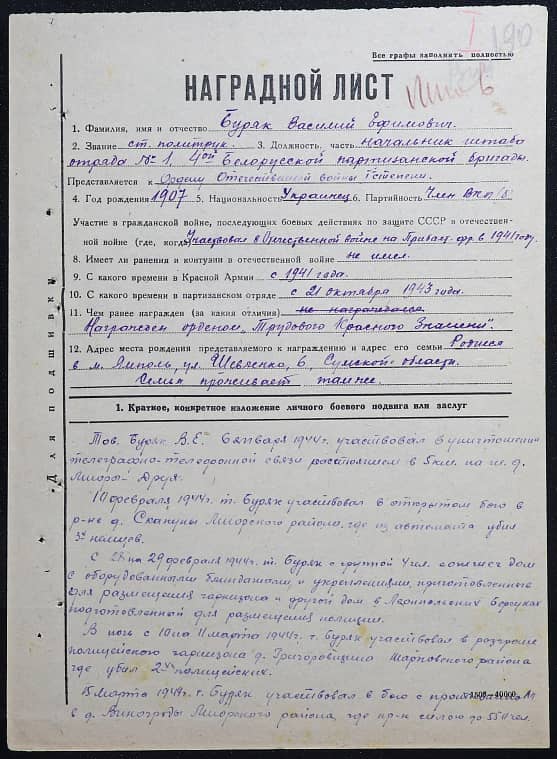 I 190
Все графы заполнять полностью
НАГРАДНОЙ ЛИСТ
1. Фамилия, имя и отчество Буряк Василий Ефимович.
2. Звание ст. политрук. 3. Должность, часть начальник штаба
отряда № 1, 4ой Белорусской партизанской бригады.
Представляется к Ордену Отечественной войны I степени.
4. Год рождения 1907 5. Национальность Украинец 6. Партийность Член ВКП/б/
Участие в гражданской войне, последующих боевых действиях по защите СССР и отечествен-
ной войне (где, когда) Участвовал в Отечественной войне на Прибалт. фр. в 1941 году.
8. Имеет ли ранения и контузии в отечественной войне не имел.
9. С какого времени в Красной Армии с 1941 года.
10. С какого времени в партизанском отряде с 21 октября 1943 года.
11. Чем ранее награжден (за какия отличия) не награждался
Награжден орденом „Трудового Красного Знамени".
12. Адрес места рождения представляемого к награждению и адрес его семьи Родился
в м. Ямполь, ул. Шевченко, 6, Сумской области.
Семья проживает там же.
Для подшивки
1. Краткое, конкретное изложение личного боевого подвига или заслуг
Тов. Буряк В.Е. 6 января 1944 г. участвовал в уничтожении
телеграфно-телефонной связи расстоянием в 5 км. на ж. д.
Миоры - Друя.
10 февраля 1944 г. т. Буряк участвовал в открытом бою в
р-не д. Скапуны Миорского района, где из автомата убил
3х немцев.
С 28 на 29 февраля 1944 г. т. Буряк с группой 4 чел. сжег дом
с оборудованными блиндажами и укреплениями, приготовленные
для размещения гарнизона и другой дом в Леонпольских
подготовленной для размещения полиции.
В ночь с 10 на 11 марта 1944 г. т. Буряк участвовал в разгроме
полицейского гарнизона д. Григоровщина Шарковского района
где убил 2х полицейских.
15 марта 1944 г. т. Буряк участвовал в бою с противником
в д. Винограды Миорского района, где пр-к силою до 55 чел.
1500—40000